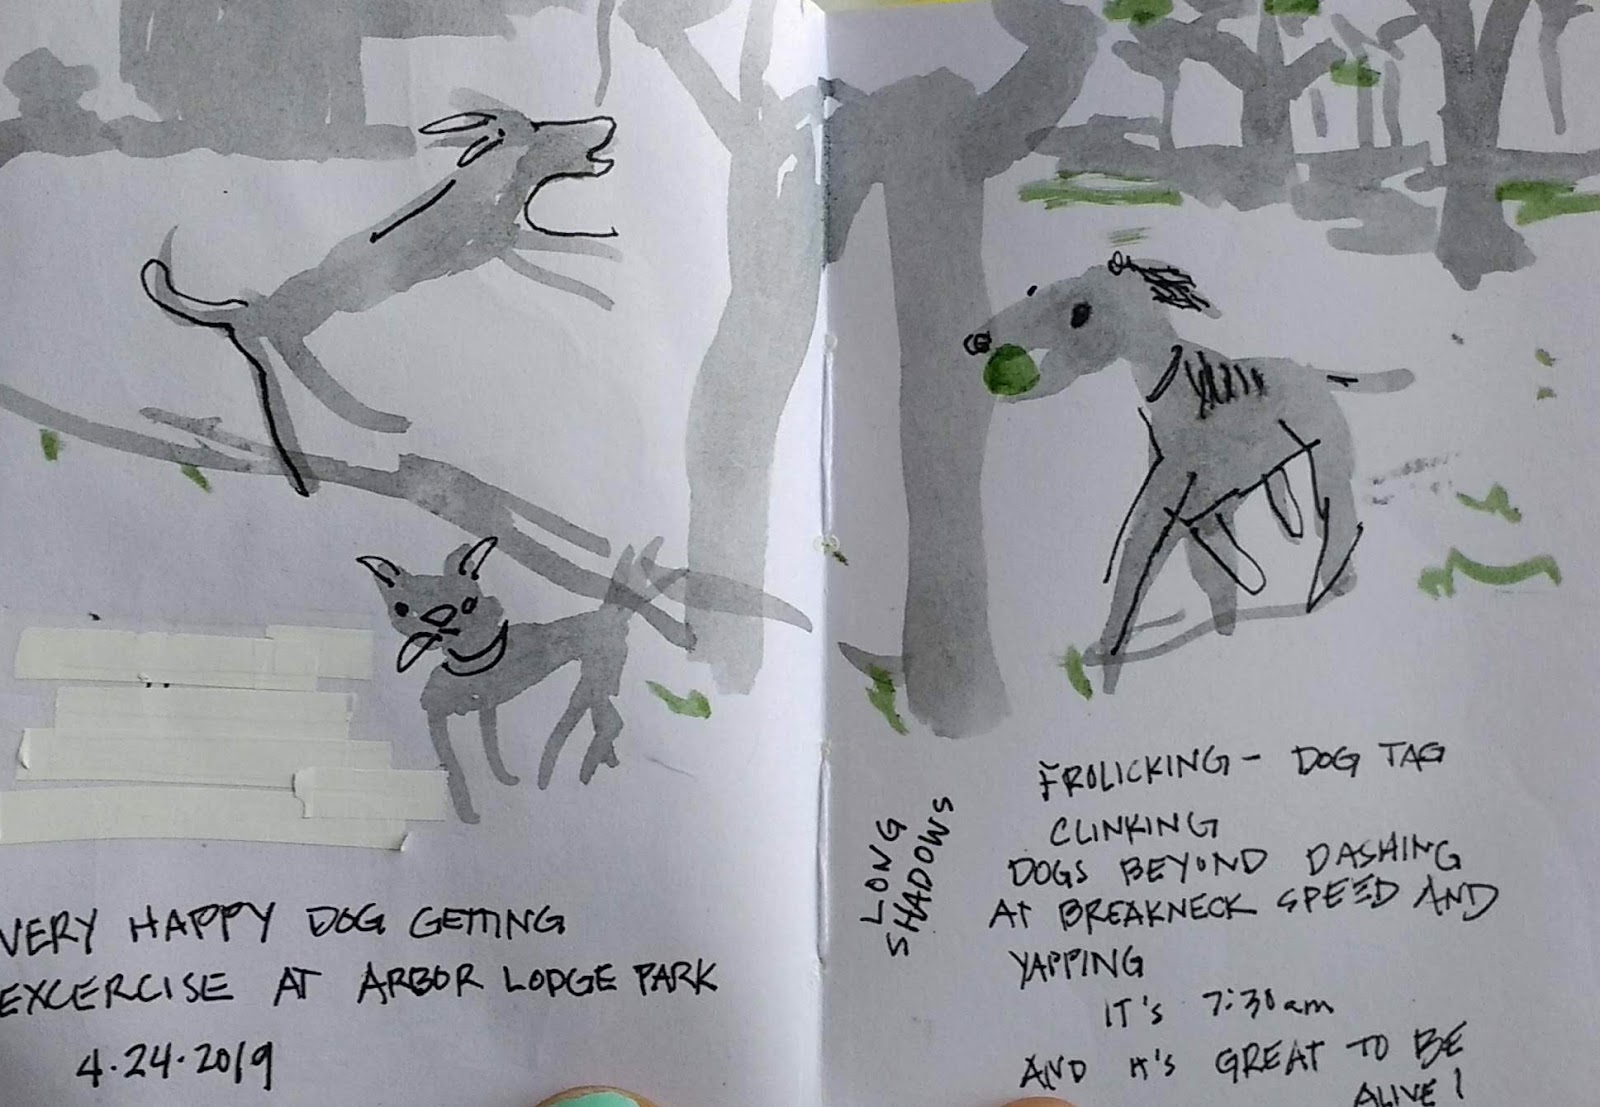 VERY HAPPY DOG GETTING
EXCERCISE AT ARBOR LODGE PARK
4.24.2019
LONG
SHADOWS
FROLICKING - DOG TAG
CLINKING
DOGS BEYOND DASHING
AT BREAKNECK SPEED AND
YAPPING
IT'S 7:30am
AND IT'S GREAT TO BE
ALIVE!